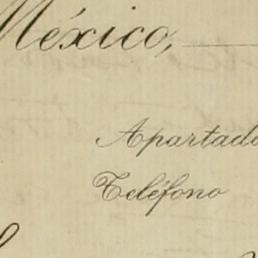 México,
Apartado
Teléfono